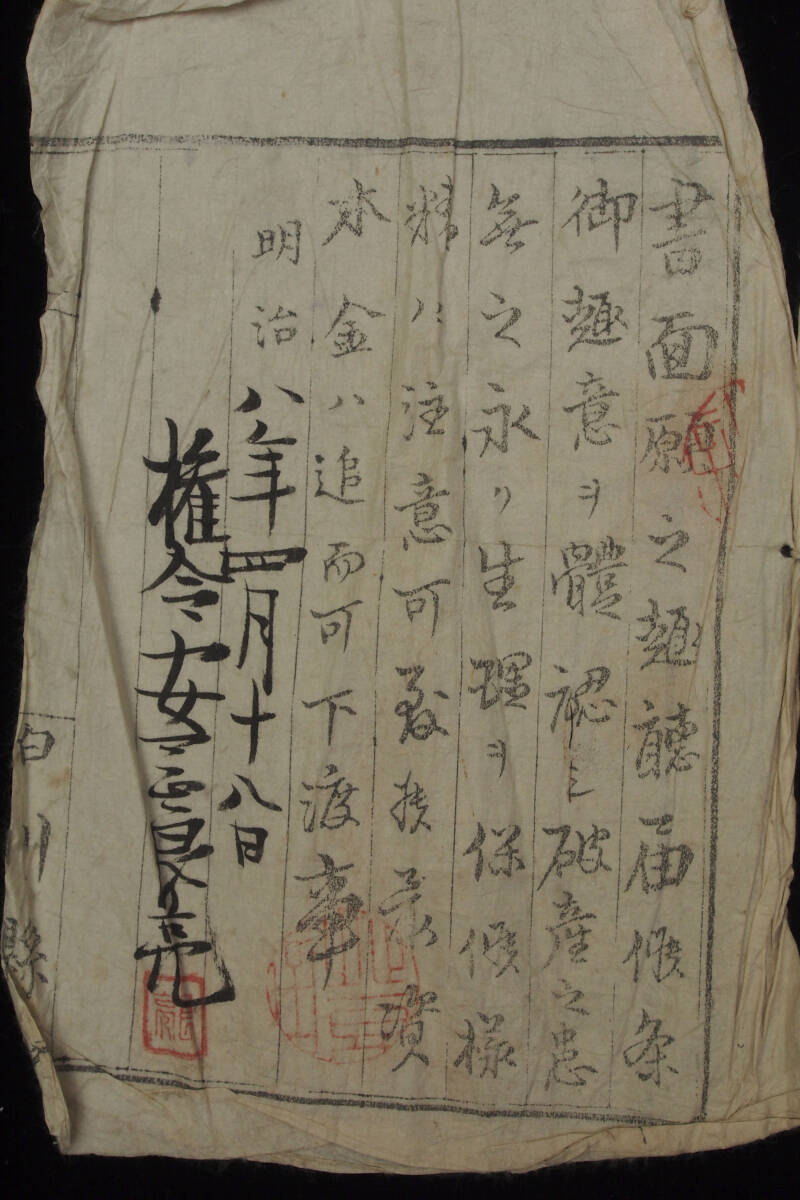 書面願之趣聽届候条
御趣意ヲ體認シ破産之患
無之永ク生理ヲ保候様
精々注意可致猶家資
本金ハ追而可下渡事
明治八年四月十八日
権令安岡良亮
白川縣